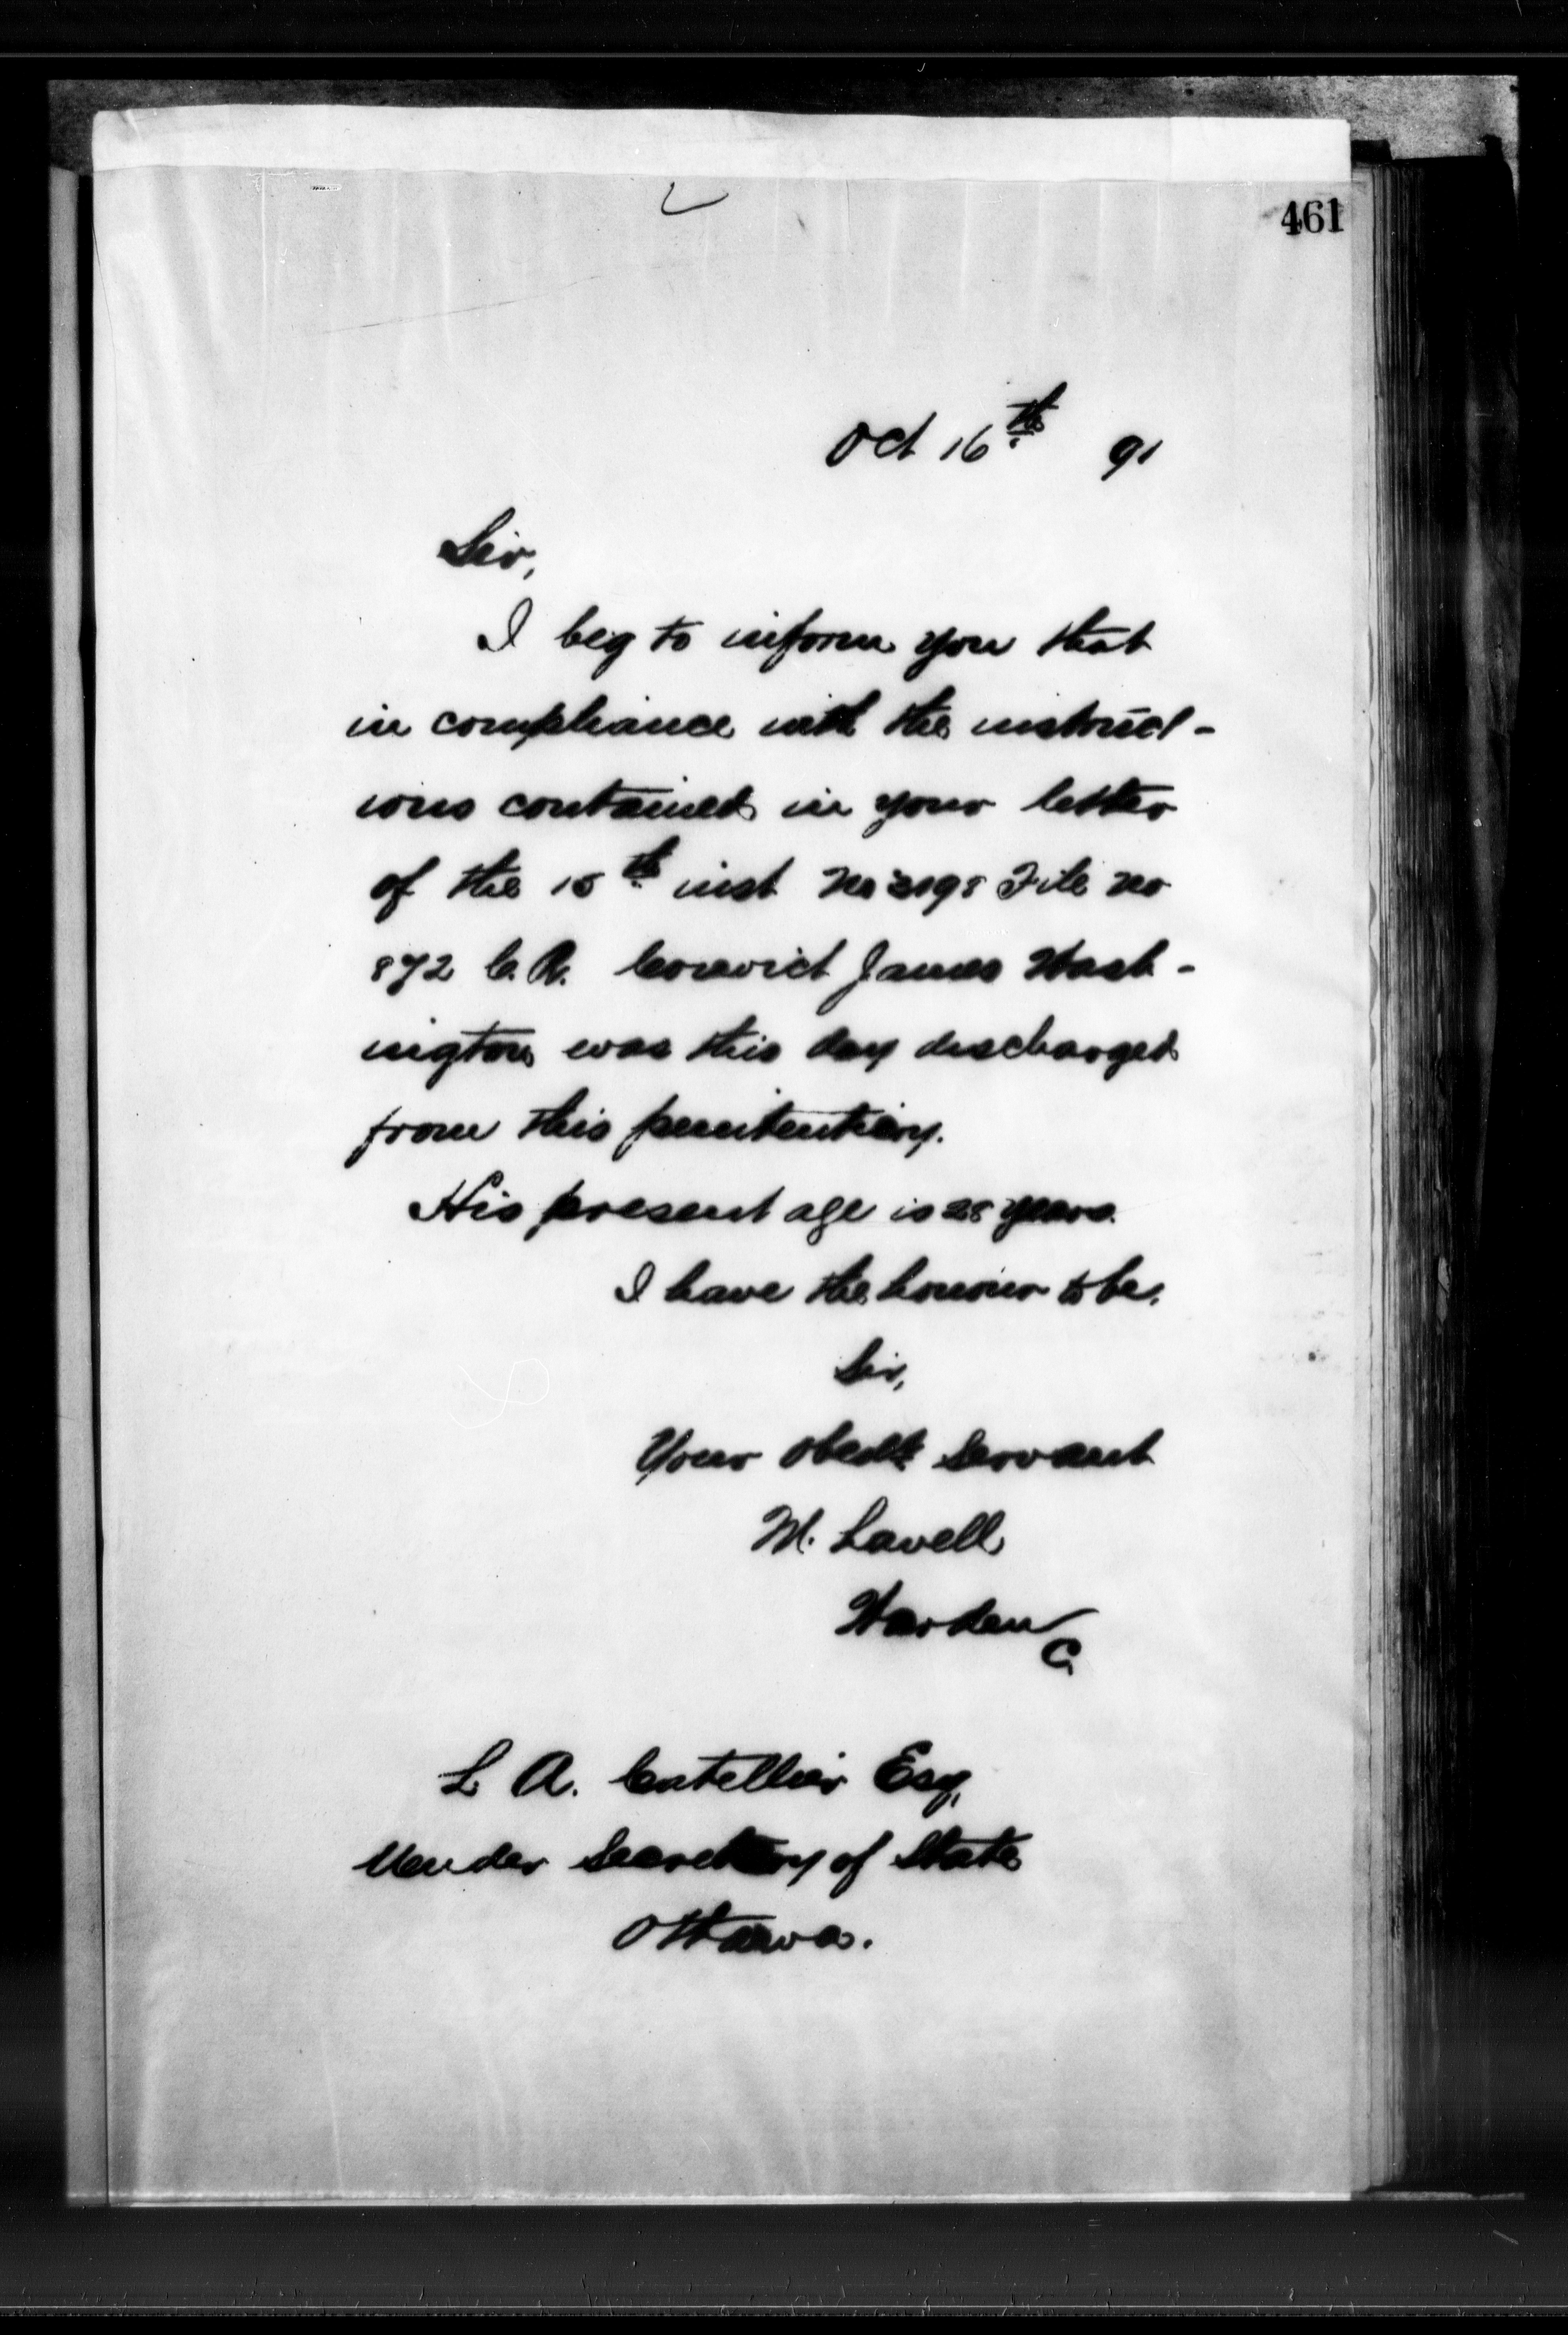 461
Oct 16th 91
Sir,
I beg to inform you that
in compliance with the instruct-
ions contained in your letter
of the 15th inst No 3198 File No
872 C. R. Convict James Wash-
ington was this day discharged
from this penitentiary.
His present age is 28 years.
I have the honour to be.
Sir,
Your obedt Servant
M. Lavell
Warden
C
L A. Catellier Esq,
Under Secretary of State
Ottawa.